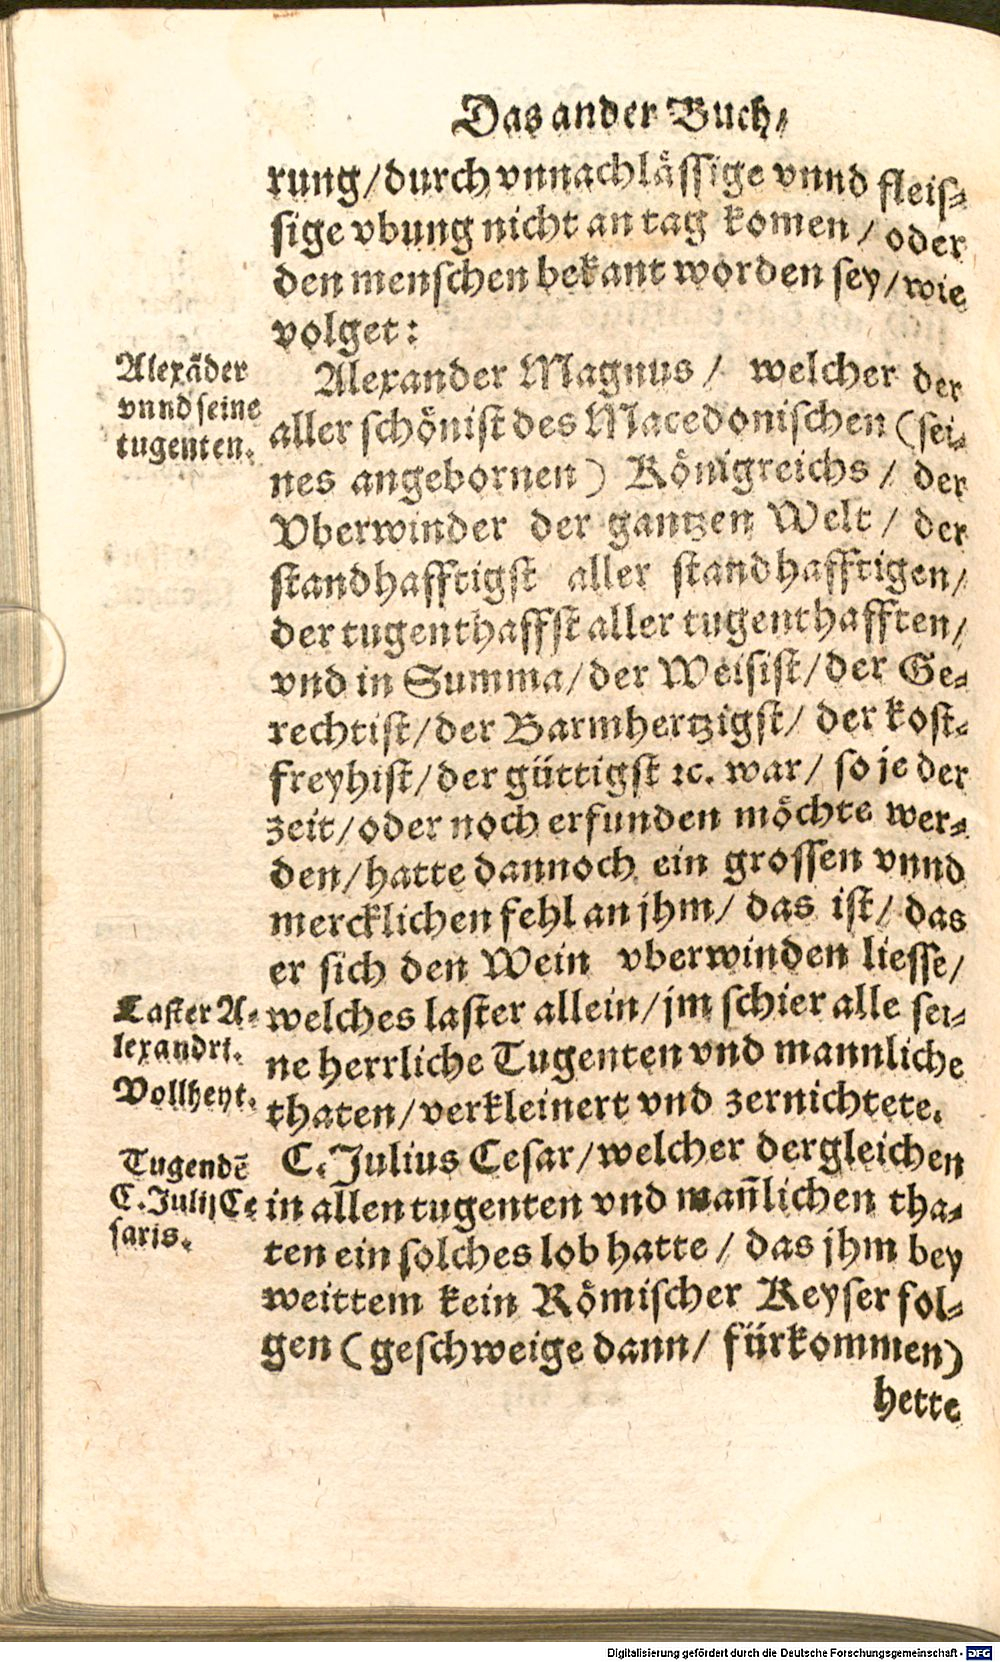 Das ander Buch,
rung/durch vnnachlässige vnnd fleis-
sige vbung nicht an tag komen/oder
den menschen bekant worden sey/wie
volget:
Alexãder
vnnd seine
tugenten.
Alexander Magnus/ welcher der
aller schönist des Macedonischen (sei-
nes angebornen) Königreichs/ der
Vberwinder der gantzen Welt/ der
standhafftigst aller standhafftigen/
der tugenthaffst aller tugenthafften/
vnd in Summa/der Weisist/der Ge-
rechtist/der Barmhertzigst/ der kost-
freyhist/der güttigst ꝛc. war/ so je der
zeit/oder noch erfunden möchte wer-
den/hatte dannoch ein grossen vnnd
mercklichen fehl an jhm/ das ist/ das
er sich den Wein vberwinden liesse/
Laster A-
lexandri.
Vollheyt.
welches laster allein/jm schier alle sei-
ne herrliche Tugenten vnd mannliche
thaten/verkleinert vnd zernichtete.
Tugendẽ
C. Julij Ce
saris.
C. Julius Cesar/welcher dergleichen
in allen tugenten vnd mañlichen tha-
ten ein solches lob hatte/ das jhm bey
weittem kein Römischer Keyser fol-
gen (geschweige dann/ fürkommen)
hette
Digitalisierung gefördert durch die Deutsche Forschungsgemeinschaft - DFG